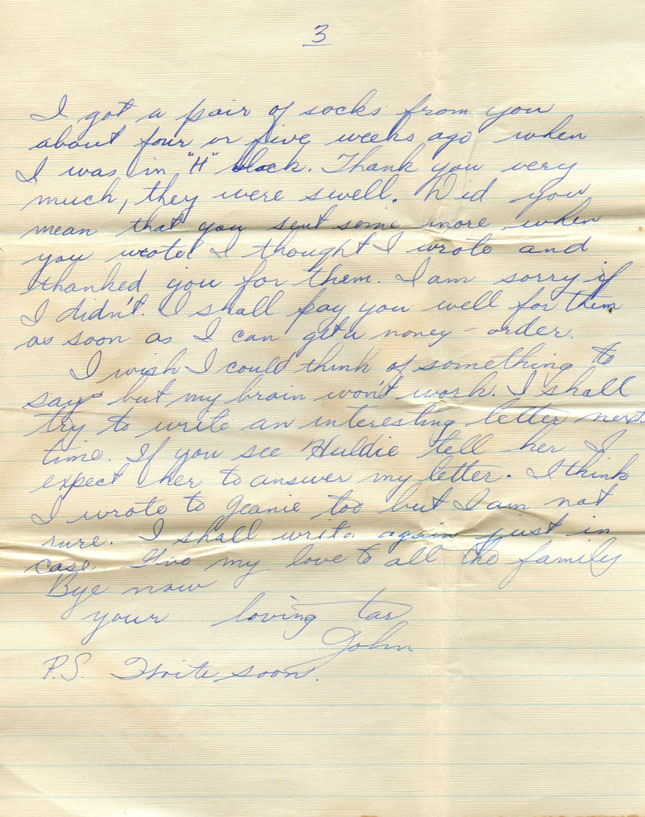 3
I got a pair of socks from you
about four or five weeks ago when
I was in "H" block. Thank you very
much, they were swell. Did you
mean that you sent some more when
you wrote? I thought I wrote and
thanked you for them. I am sorry if
I didn't. I shall pay you well for them
as soon as I can get a money-order.
I wish I could think of something to
say but my brain won't work. I shall
try to write an interesting letter next
time. If you see Huldie tell her I
expect her to answer my letter. I think
I wrote to Jeanie too but I am not
sure. I shall write again just in
case. Give my love to all the family
Bye now
your loving tar
John
P.S. Write soon.